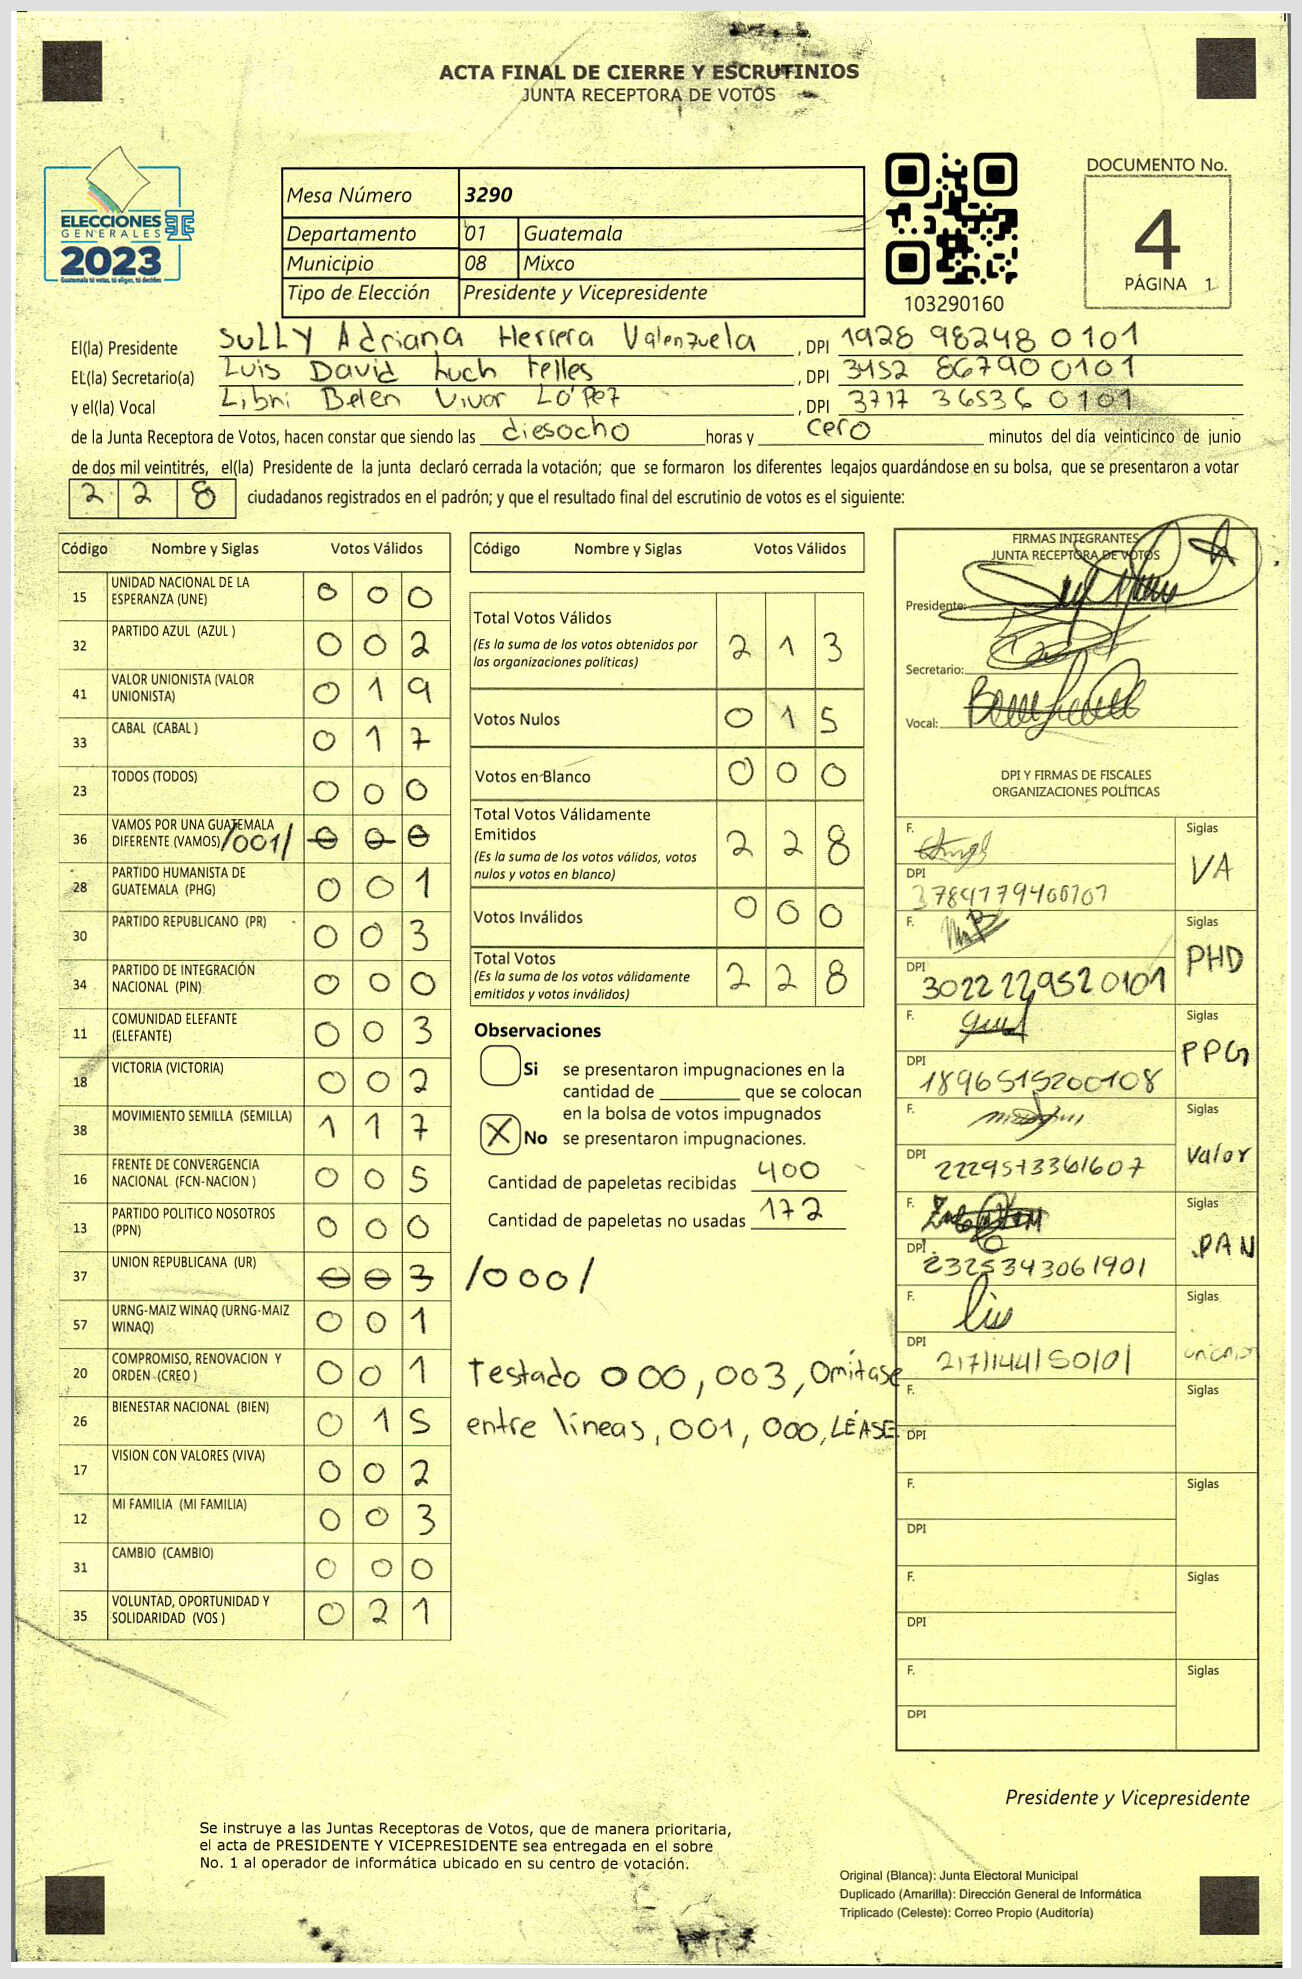 ACTA FINAL DE CIERRE Y ESCRUTINIOS
JUNTA RECEPTORA DE VOTOS
ELECCIONES
GENERALES
2023
Guatemala tú votas, tú eliges, tú decides
Mesa Número 3290
Departamento 01 Guatemala
Municipio 08 Mixco
Tipo de Elección Presidente y Vicepresidente
103290160
DOCUMENTO No.
4
PÁGINA 1
El(la) Presidente Sully Adriana Herrera Valenzuela, DPI 1928 98248 0101
EL(la) Secretario(a) Luis David Luch Telles, DPI 3152 86790 0101
y el(la) Vocal Libni Belen Vivar López, DPI 3717 36536 0101
de la Junta Receptora de Votos, hacen constar que siendo las diesocho horas y cero minutos del día veinticinco de junio
de dos mil veintitrés, el(la) Presidente de la junta declaró cerrada la votación; que se formaron los diferentes legajos guardándose en su bolsa, que se presentaron a votar
2 2 8 ciudadanos registrados en el padrón; y que el resultado final del escrutinio de votos es el siguiente:
Código Nombre y Siglas Votos Válidos
15 UNIDAD NACIONAL DE LA ESPERANZA (UNE) 0 0 0
32 PARTIDO AZUL (AZUL ) 0 0 2
41 VALOR UNIONISTA (VALOR UNIONISTA) 0 1 9
33 CABAL (CABAL ) 0 1 7
23 TODOS (TODOS) 0 0 0
36 VAMOS POR UNA GUATEMALA DIFERENTE (VAMOS) /001/ 0 0 0
28 PARTIDO HUMANISTA DE GUATEMALA (PHG) 0 0 1
30 PARTIDO REPUBLICANO (PR) 0 0 3
34 PARTIDO DE INTEGRACIÓN NACIONAL (PIN) 0 0 0
11 COMUNIDAD ELEFANTE (ELEFANTE) 0 0 3
18 VICTORIA (VICTORIA) 0 0 2
38 MOVIMIENTO SEMILLA (SEMILLA) 1 1 7
16 FRENTE DE CONVERGENCIA NACIONAL (FCN-NACION ) 0 0 5
13 PARTIDO POLITICO NOSOTROS (PPN) 0 0 0
37 UNION REPUBLICANA (UR) 0 0 3 /000/
57 URNG-MAIZ WINAQ (URNG-MAIZ WINAQ) 0 0 1
20 COMPROMISO, RENOVACION Y ORDEN (CREO ) 0 0 1
26 BIENESTAR NACIONAL (BIEN) 0 1 5
17 VISION CON VALORES (VIVA) 0 0 2
12 MI FAMILIA (MI FAMILIA) 0 0 3
31 CAMBIO (CAMBIO) 0 0 0
35 VOLUNTAD, OPORTUNIDAD Y SOLIDARIDAD (VOS ) 0 2 1
Código Nombre y Siglas Votos Válidos
Total Votos Válidos 2 1 3
(Es la suma de los votos obtenidos por
las organizaciones políticas)
Votos Nulos 0 1 5
Votos en Blanco 0 0 0
Total Votos Válidamente
Emitidos 2 2 8
(Es la suma de los votos válidos, votos
nulos y votos en blanco)
Votos Inválidos 0 0 0
Total Votos 2 2 8
(Es la suma de los votos válidamente
emitidos y votos inválidos)
Observaciones
Si se presentaron impugnaciones en la
cantidad de ________ que se colocan
en la bolsa de votos impugnados
X No se presentaron impugnaciones.
Cantidad de papeletas recibidas 400
Cantidad de papeletas no usadas 172
Testado 000, 003, Omítase
entre líneas, 001, 000, LÉASE.
FIRMAS INTEGRANTES
JUNTA RECEPTORA DE VOTOS
Presidente:
Secretario:
Vocal:
DPI Y FIRMAS DE FISCALES
ORGANIZACIONES POLÍTICAS
F. Siglas VA
DPI
F. Siglas PHD
DPI 3022 22952 0101
F. Siglas PPG
DPI 1896515200108
F. Siglas Valor
DPI 2229573361607
F. Siglas PAN
DPI 2325343061901
F. Siglas
DPI
F. Siglas
DPI
F. Siglas
DPI
F. Siglas
DPI
F. Siglas
DPI
Presidente y Vicepresidente
Se instruye a las Juntas Receptoras de Votos, que de manera prioritaria,
el acta de PRESIDENTE Y VICEPRESIDENTE sea entregada en el sobre
No. 1 al operador de informática ubicado en su centro de votación.
Original (Blanca): Junta Electoral Municipal
Duplicado (Amarilla): Dirección General de Informática
Triplicado (Celeste): Correo Propio (Auditoría)